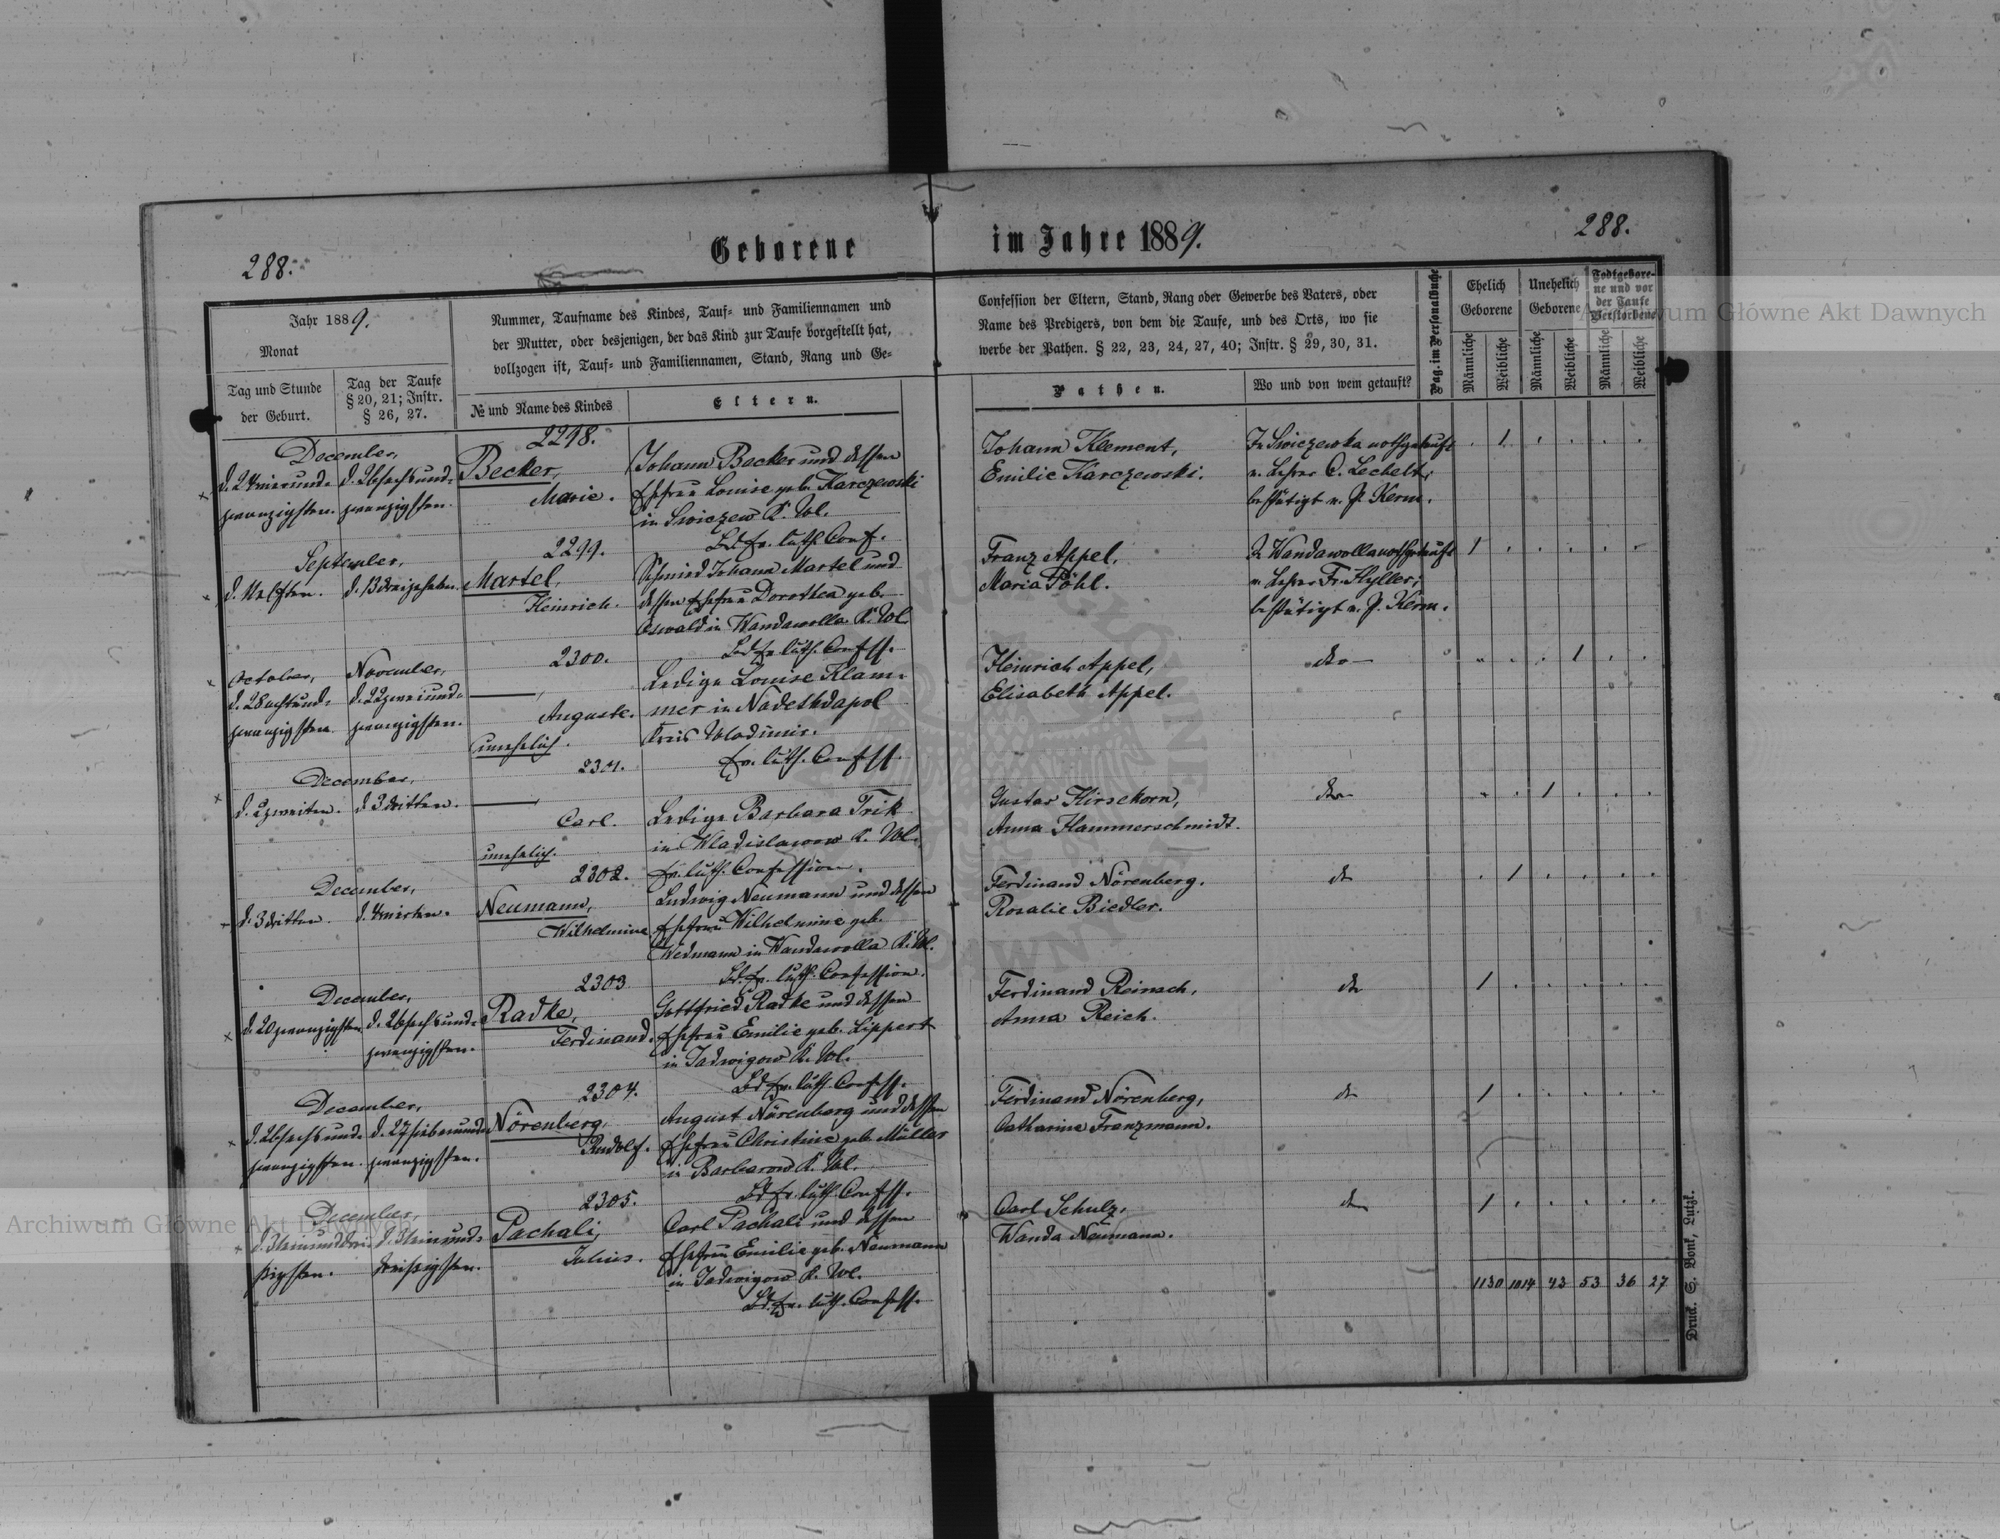 288.
Geborene im Jahre 1889.
288.
Jahr 1889.
Monat
Tag und Stunde
der Geburt.
Tag der Taufe
§ 20, 21; Instr.
§ 26, 27.
Nummer, Taufname des Kindes, Tauf- und Familiennamen und
der Mutter, oder desjenigen, der das Kind zur Taufe vorgestellt hat,
vollzogen ist, Tauf- und Familiennamen, Stand, Rang und Ge-
№ und Name des Kindes
Eltern.
Confession der Eltern, Stand, Rang oder Gewerbe des Vaters, oder
Name des Predigers, von dem die Taufe, und des Orts, wo sie
werbe der Pathen. § 22, 23, 24, 27, 40; Instr. § 29, 30, 31.
Pathen.
Wo und von wem getauft?
Pag. im Personalbuche
Ehelich
Geborene
Unehelich
Geborene
Todtgebore-
ne und vor
der Taufe
Verstorbene
Männliche
Weibliche
Männliche
Weibliche
Männliche
Weibliche
December,
d. 24 vierund-
zwanzigsten.
d. 26 sechsund-
zwanzigsten.
2298.
Becker,
Marie.
Johann Becker und dessen
Ehefrau Louise geb. Karczewski
in Swiczew K. Wl.
Bd. ev. luth. Conf.
Johann Klement,
Emilie Karczewski.
In Swiczewka nothgetauft
v. Lehrer O. Lechelt;
bestätigt v. P. Kerm.
1
September,
d. 11 elften.
d. 13 dreizehnten.
2299.
Martel,
Heinrich.
Schmied Johann Martel und
dessen Ehefrau Dorothea geb.
Oswald in Wandawolla K. Wl.
Bd. ev. luth. Confess.
Franz Appel,
Maria Pöhl.
In Wandawolla nothgetauft
v. Lehrer Fr. Hyller;
bestätigt v. P. Kerm.
1
October,
d. 28 achtund-
zwanzigsten.
November,
d. 22 zweiund-
zwanzigsten.
2300.
Auguste.
unehelich.
Ledige Louise Klam-
mer in Nadeshdapol
Kreis Wladimir.
Ev. luth. Confess.
Heinrich Appel,
Elisabeth Appel.
dto
1
December,
d. 2 zweiten.
d. 3 dritten.
2301.
Carl.
unehelich.
Ledige Barbara Trik
in Wladislawow K. Wl.
Ev. luth. Confession.
Gustav Hirsekorn,
Anna Hammerschmidt.
dto
1
December,
d. 3 dritten.
d. 4 vierten.
2302.
Neumann,
Wilhelmine
Ludwig Neumann und dessen
Ehefrau Wilhelmine geb.
Wedmann in Wandawolla K. Wl.
Bd. ev. luth. Confession.
Ferdinand Nörenberg.
Rosalie Biedler.
do
1
December,
d. 20 zwanzigsten
d. 26 sechsund-
zwanzigsten.
2303
Radke,
Ferdinand.
Gottfried Radke und dessen
Ehefrau Emilie geb. Lippert
in Jadwigow K. Wl.
Bd. ev. luth. Confess.
Ferdinand Reinsch,
Anna Reich.
do
1
December,
d. 26 sechsund-
zwanzigsten.
d. 27 siebenund-
zwanzigsten.
2304.
Nörenberg,
Rudolf.
August Nörenberg und dessen
Ehefrau Christine geb. Müller
in Barbarow K. Wl.
Bd. ev. luth. Confess.
Ferdinand Nörenberg,
Catharine Franzmann.
do
1
December,
d. 31 einunddrei-
ßigsten.
d. 31 einund-
dreißigsten.
2305.
Pachali,
Julius.
Carl Pachali und dessen
Ehefrau Emilie geb. Neumann
in Jadwigow K. Wl.
Bd. ev. luth. Confess.
Carl Schulz,
Wanda Neumann.
do
1
1130 1014 43 53 36 27
Druck. S. Bonk, Lutzk.
Archiwum Główne Akt Dawnych
Archiwum Główne Akt Dawnych